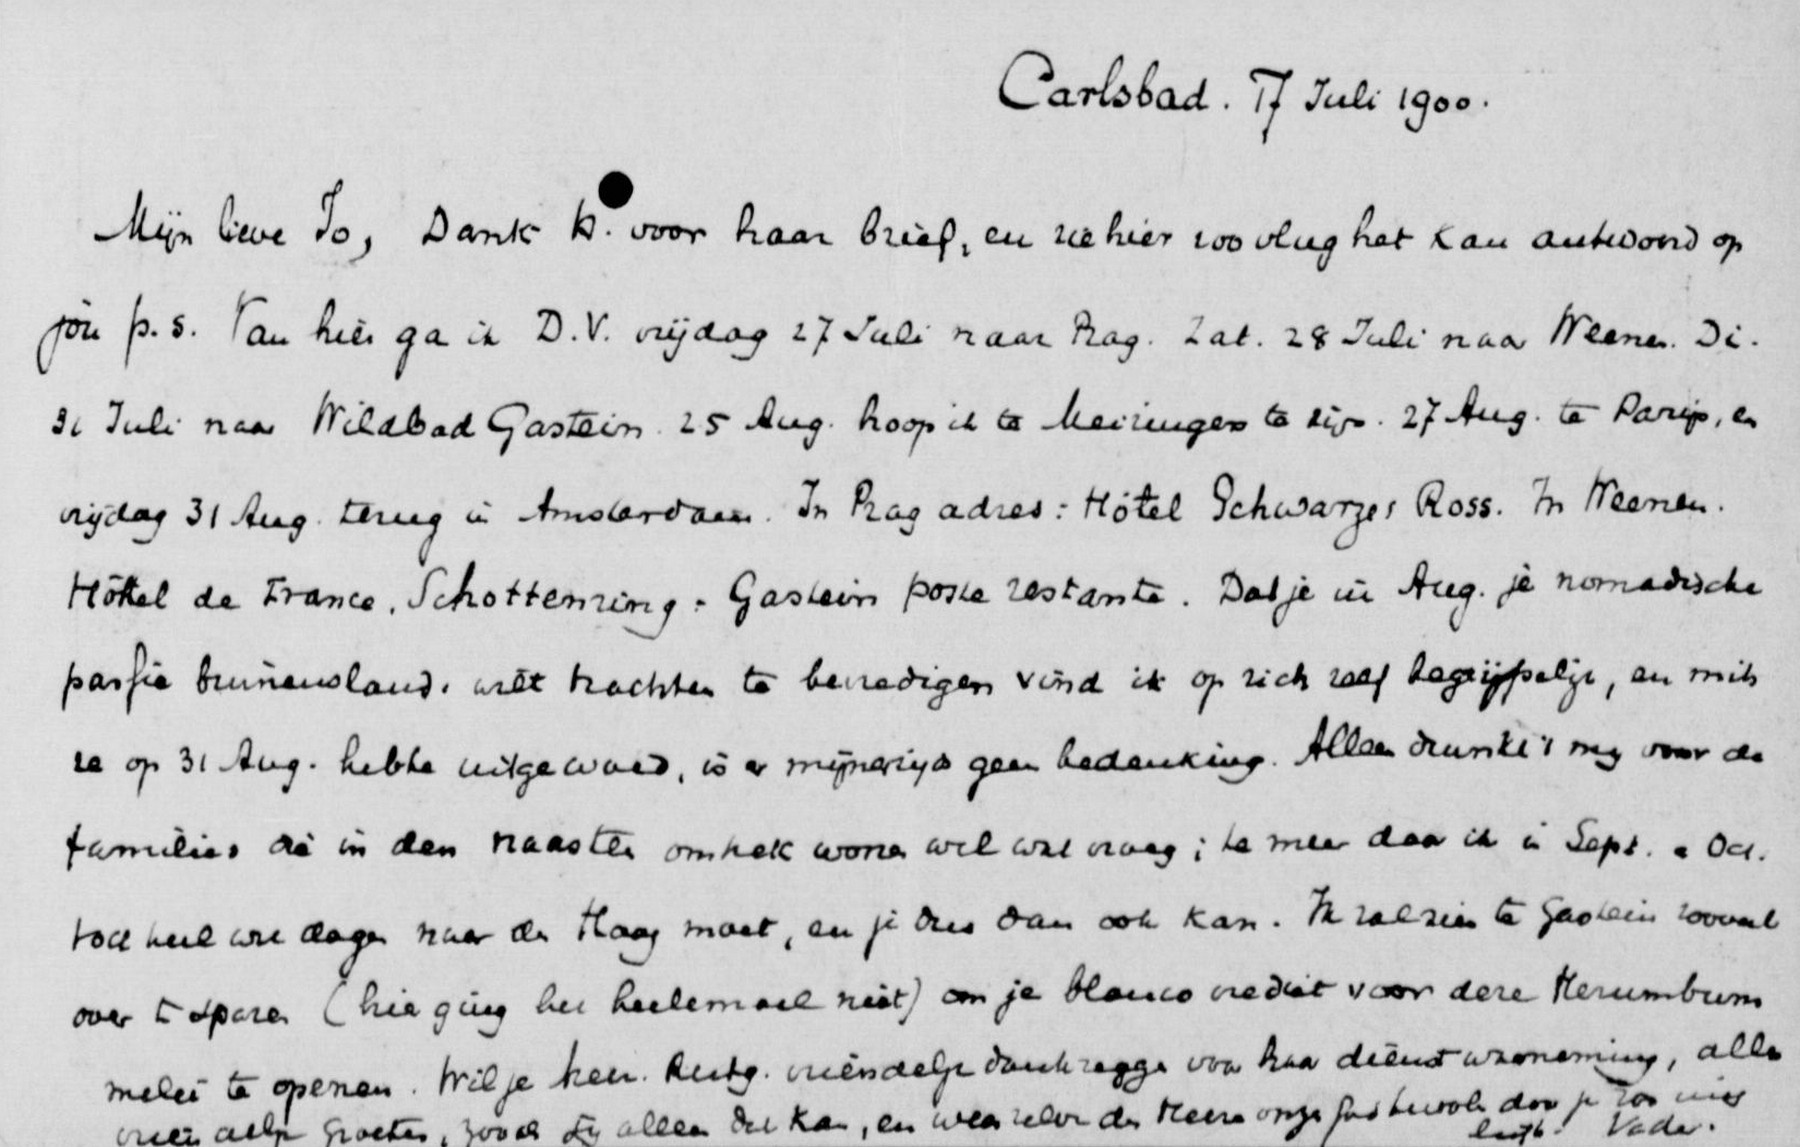 Carlsbad. 17 Juli 1900.
Mijn lieve Jo, Dank b. voor haar brief, en zie hier zoo vlug het kan antwoord op
jou p.s. Van hier ga ik D.V. vrijdag 27 Juli naar Prag. Zat. 28 Juli naar Weenen. Di.
31 Juli naar Wildbad Gastein. 25 Aug. hoop ik te Meiringen te zijn. 27 Aug. te Parijs, en
vrijdag 31 Aug. terug in Amsterdam. In Prag adres: Hôtel Schwarzes Ross. In Weenen.
Hôtel de France, Schottenring. Gastein poste restante. Dat je in Aug. je nomadische
passie binnenslands wilt trachten te bevredigen vind ik op zich zelf begrijpelijk, en mits
ze op 31 Aug. hebbe uitgewoed, is er mijnerzijds geen bedenking. Alleen dunkt 't mij voor de
families die in den naasten omtrek wonen wel wat vroeg; te meer daar ik in Sept. a Oct.
toch heel wat dagen naar den Haag moet, en je dus dan ook kan. Ik zal zien te Gastein zooveel
over te sparen (hier ging het heelemaal niet) om je blanco crediet voor deze
te openen. Wil je vriendelijk dankzegge voor haar dienst waarneming, alle
groeten, zooals zij alleen dat kan, en wees zelve den Heere onze God bevolen door je
Vader.